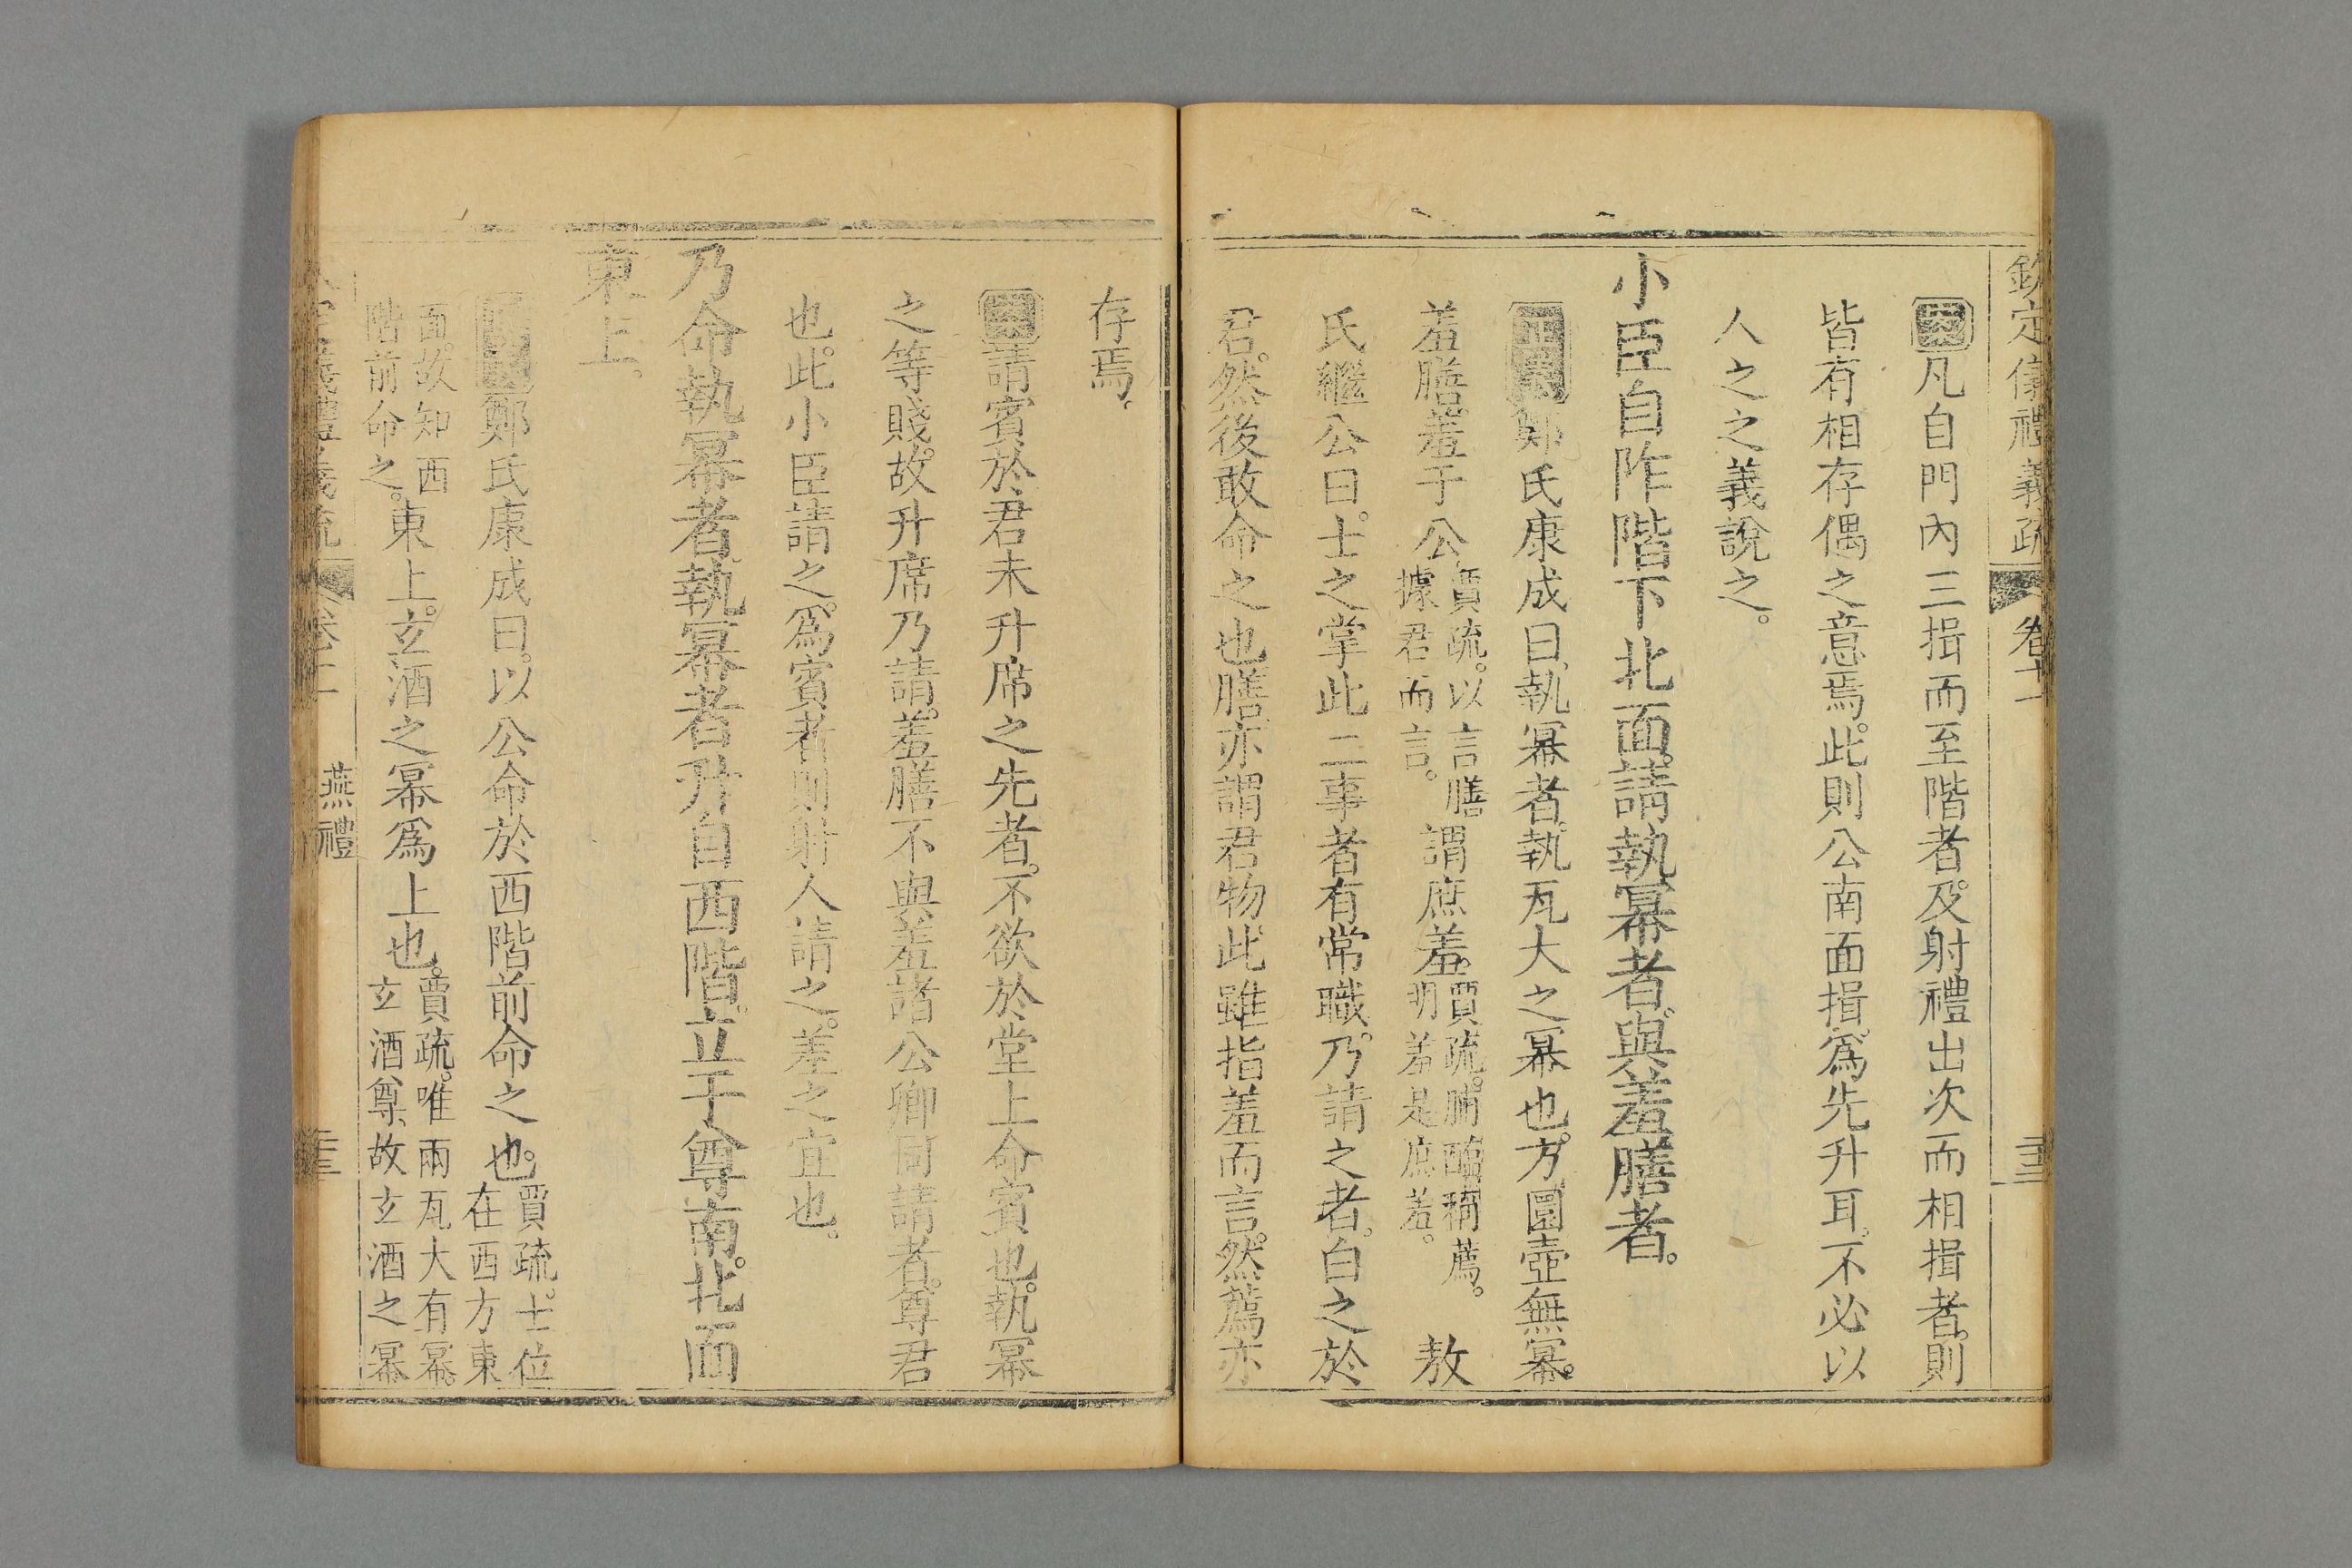 欽定儀禮義疏 卷十一
案凡自門內三揖而至階者。及射禮出次而相揖者。則
皆有相存偶之意焉。此則公南面揖。爲先升耳。不必以
人之之義說之。
小臣自阼階下北面。請執冪者。與羞膳者。
正義鄭氏康成曰。執冪者。執瓦大之冪也。方圜壺無冪。
羞膳。羞于公賈疏。以言膳。據君而言。謂庶羞。賈疏。脯醢稱薦。明羞是庶羞。 敖
氏繼公曰。士之掌此二事者有常職。乃請之者。白之於
君。然後敢命之也。膳。亦謂君物。此雖指羞而言。然薦亦
存焉。
案請賓於君未升席之先者。不欲於堂上命賓也。執冪
之等賤。故升席乃請。羞膳不與羞諸公卿同請者。尊君
也。此小臣請之。爲賓者則射人請之。差之宜也。
乃命執冪者。執冪者升自西階。立于尊南。北面
東上。
鄭氏康成曰。以公命於西階前命之也。賈疏。士位在西方東
面。故知西階前命之。東上。玄酒之冪爲上也。賈疏。唯兩瓦大有冪。玄酒尊。故玄酒之冪
燕禮